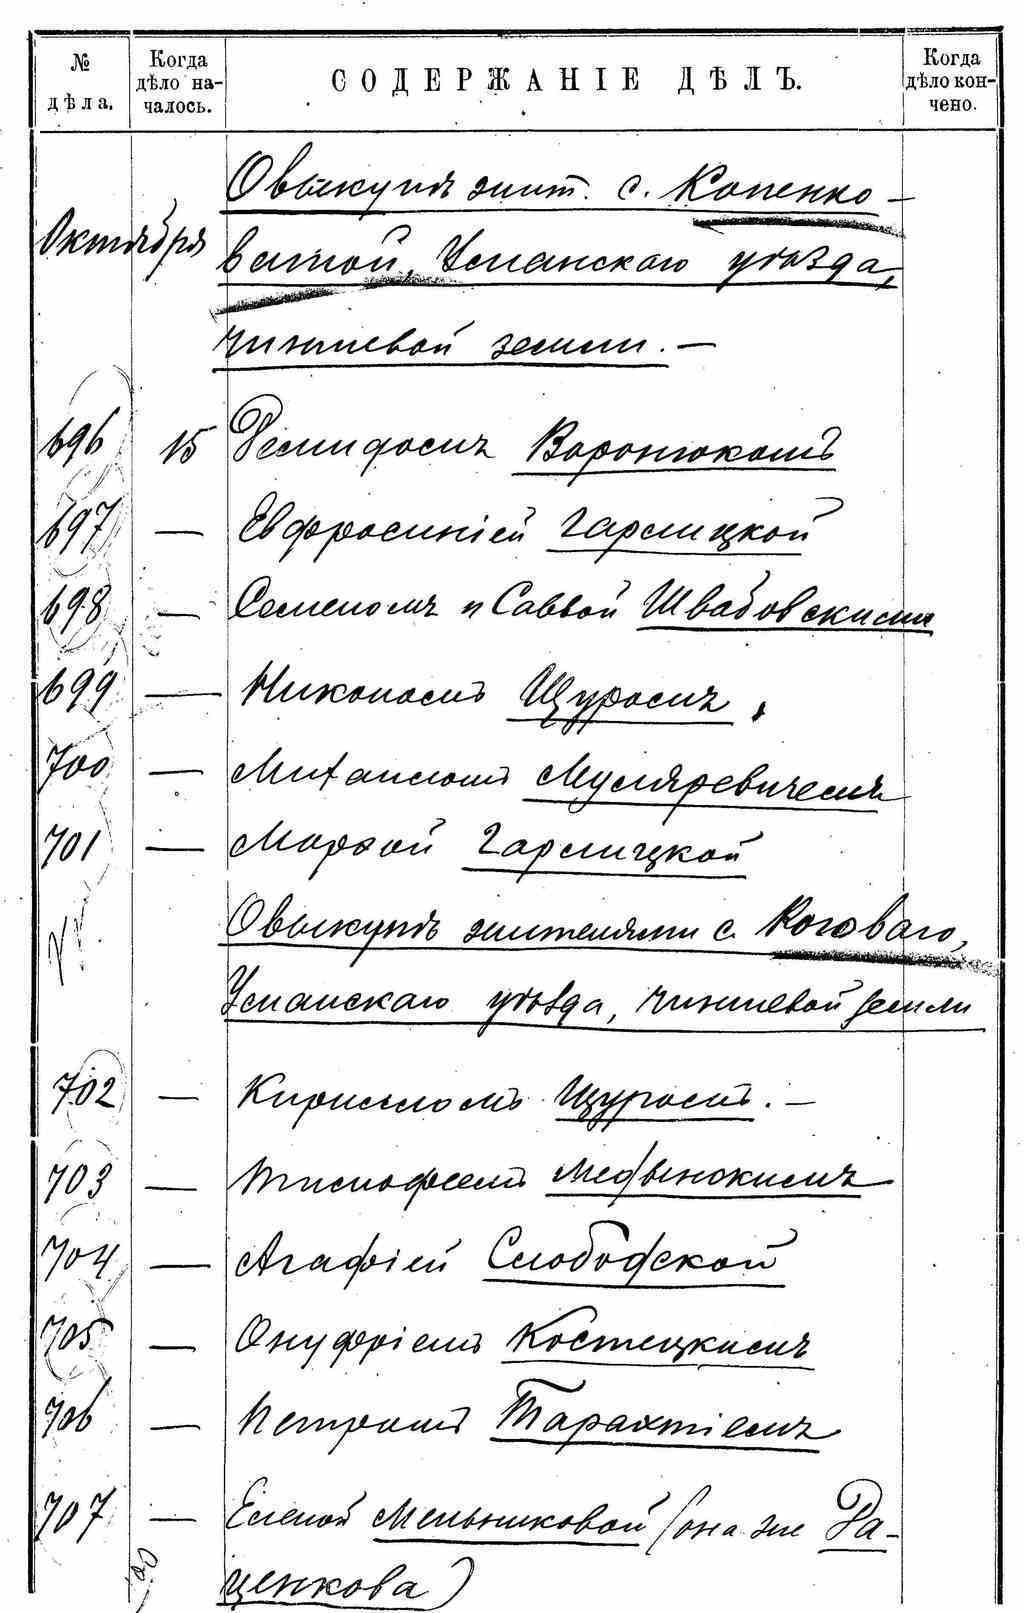 № дѣла.
Когда дѣло началось.
СОДЕРЖАНІЕ ДѢЛЪ.
Когда дѣло кончено.
О выкупѣ жит. с. Копенко-
Октября
ватой, Уманскаго уѣзда,
чиншевой земли. —
696 15 Демидомъ Воронюкомъ
697 — Евфросиніей Гарлицкой
698 — Семеномъ и Саввой Швабовскими
699 — Никономъ Щуромъ
700 — Михаиломъ Муляревичемъ
701 — Марѳой Гарлицкой
О выкупѣ жителями с. Рогова​го,
Уманскаго уѣзда, чиншевой земли
702 — Кирилломъ Щуромъ. —
703 — Тимофеемъ Медвинскимъ
704 — Агафіей Слободской
705 — Онуфріемъ Костецкимъ
706 — Петромъ Тарахтіемъ
707 — Еленой Мельниковой (она же Ра-
ценкова)